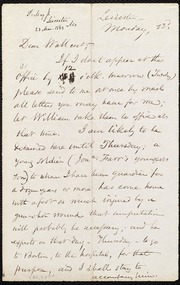 Leicester
Monday, 23
Dear Wallcut
If I don't appear at the
12
office by o'clk. tomorrow (Tuesday)
please send to me at once by mail
all letters you may have for me;
let William take them to office at
that time. I am likely to be
detained here until Thursday; a
young soldier (Jona. Farr's youngest
son) to whom I have been guardian for
a dozen years or more has come home
with a foot so much injured by a
gunshot wound that amputation
will probably be necessary, and he
expects on that day - Thursday - to go
to Boston, to the hospital, for that
purpose and I shall stay to
accompany him.